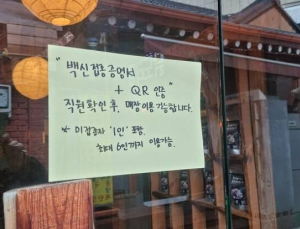 "백신접종증명서
+ QR 인증"
직원확인 후, 매장이용 가능합니다.
미접종자 '1인' 포함,
최대 6인까지 이용가능.